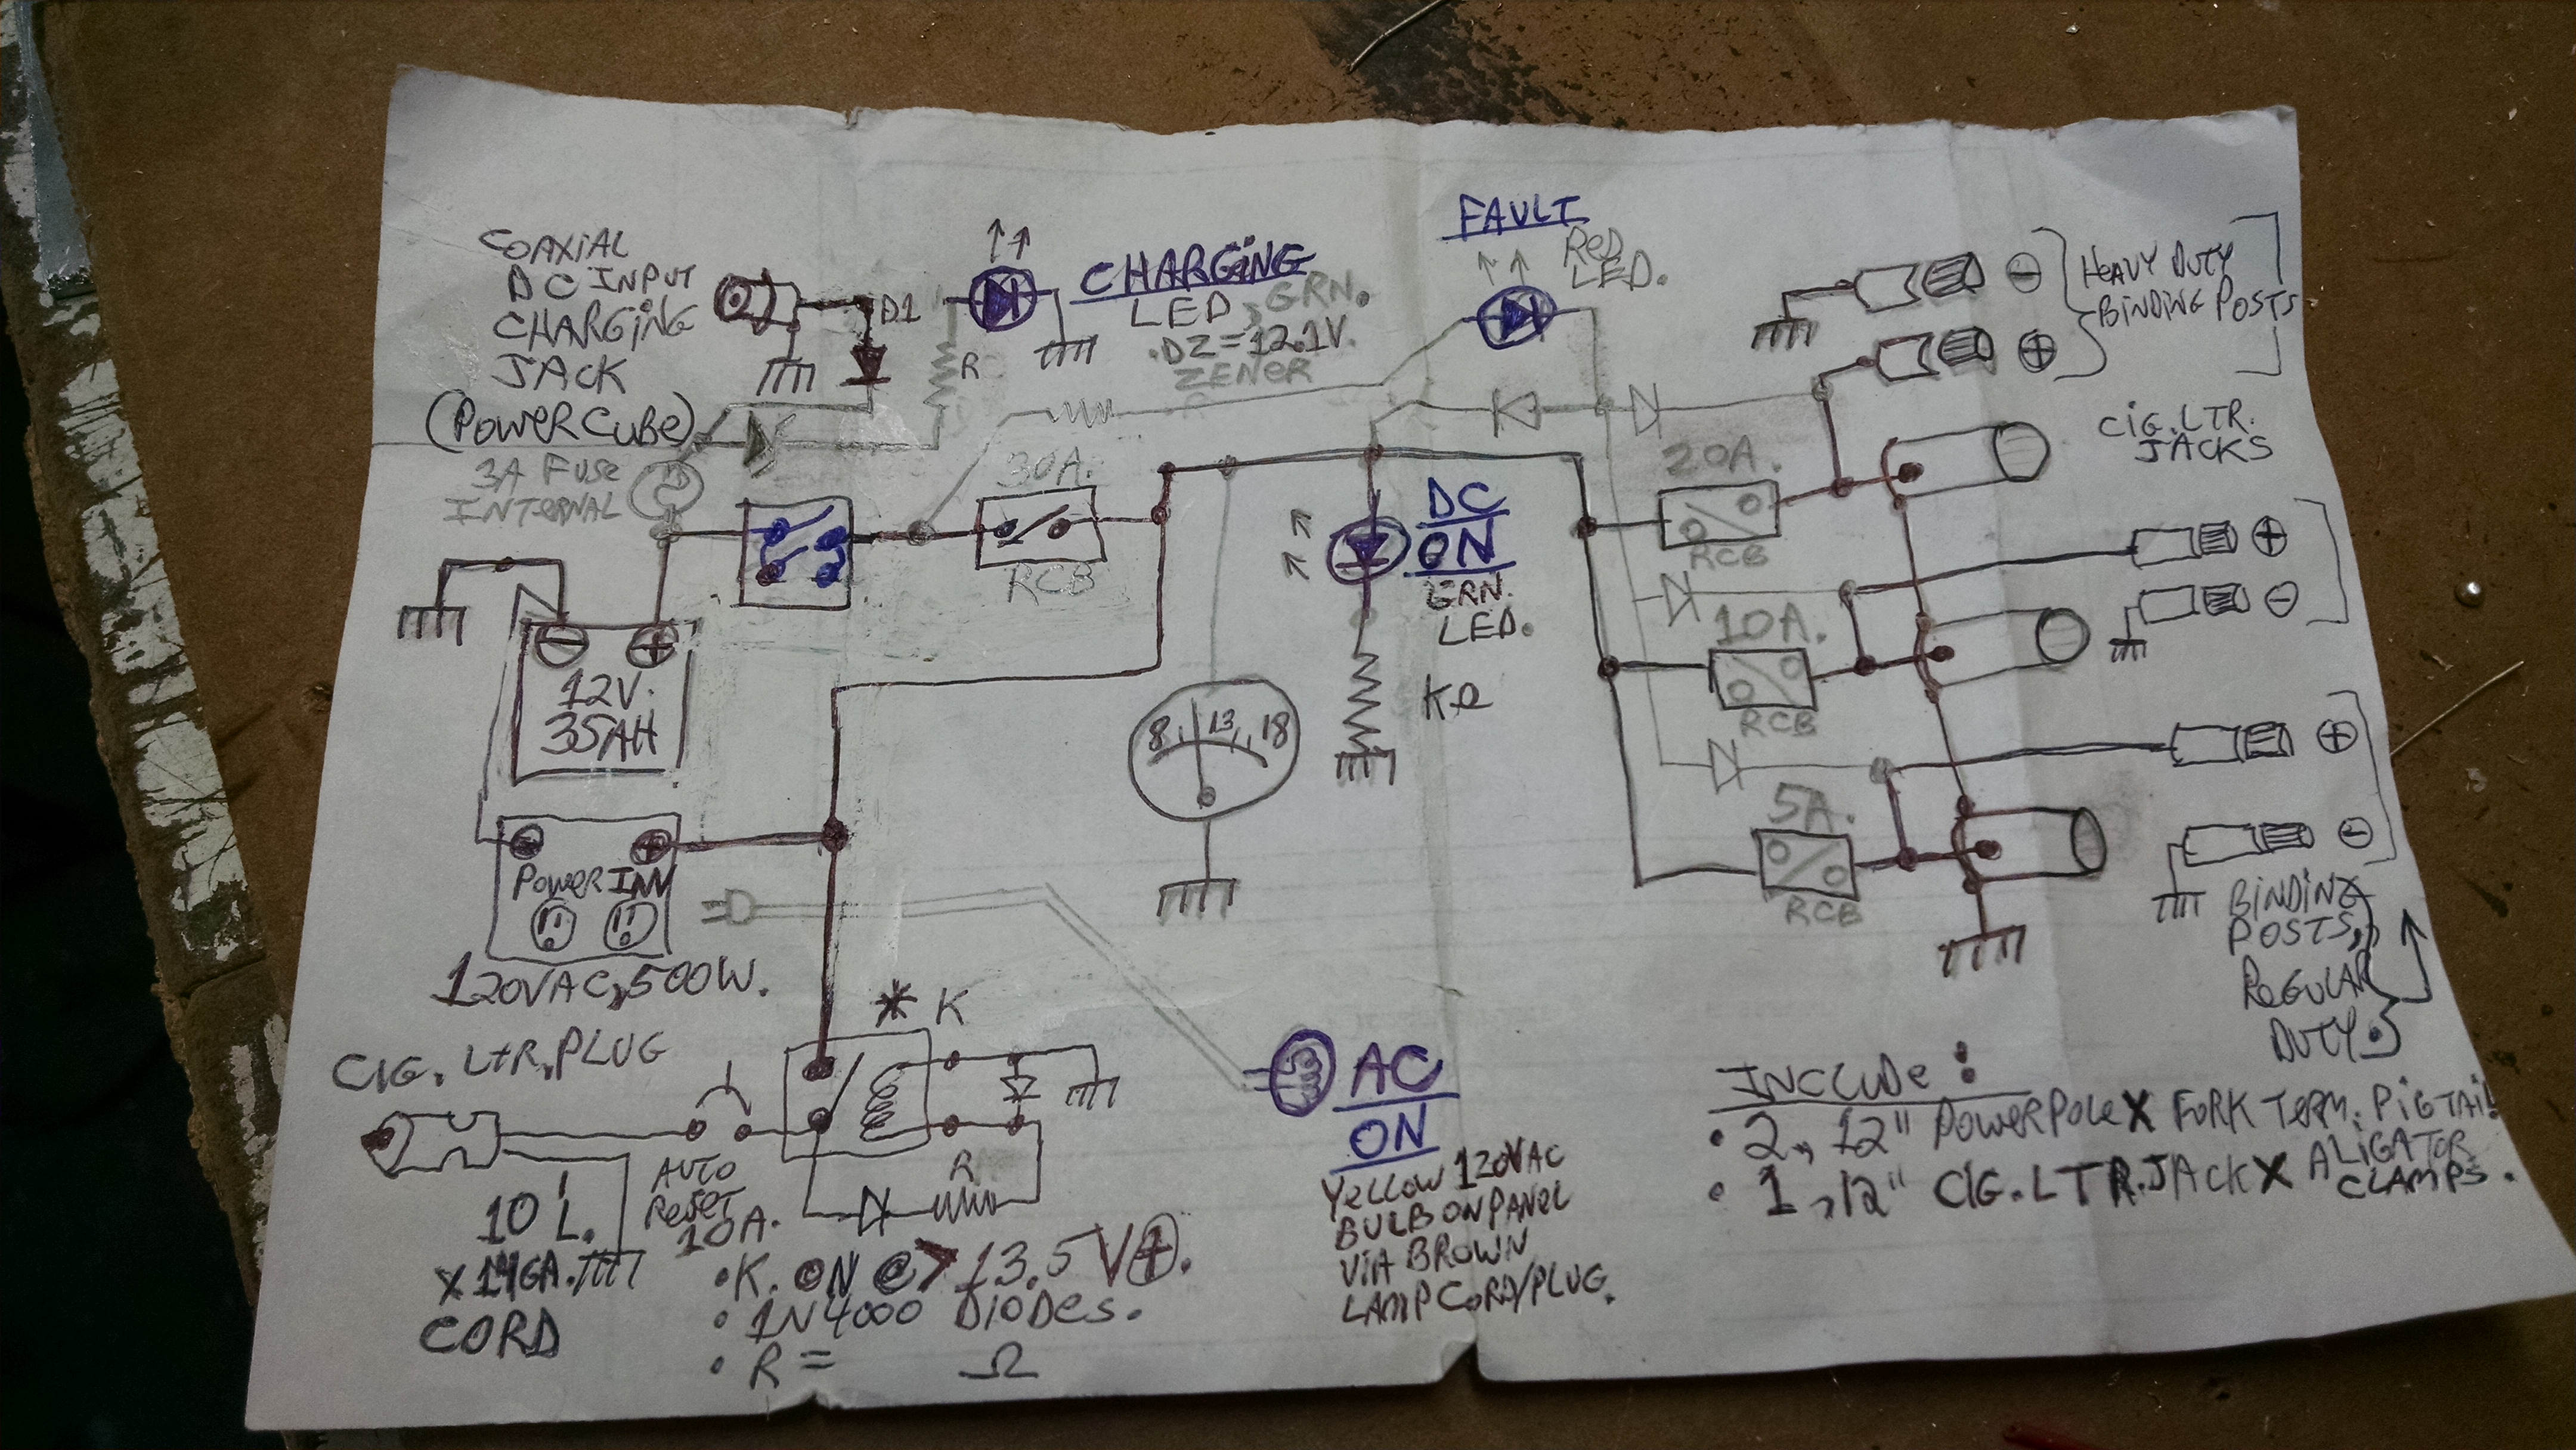 COAXIAL
DC INPUT
CHARGING
JACK
(POWER CUBE)
3A FUSE
INTERNAL
D1
R
CHARGING
LED, GRN.
.DZ=12.1V.
ZENER
FAULT
RED
LED.
- HEAVY DUTY
+ BINDING POSTS
CIG. LTR.
JACKS
30A.
RCB
DC
ON
GRN.
LED.
20A.
RCB
10A.
RCB
5A.
RCB
+
-
+
-
BINDING
POSTS,
REGULAR
DUTY.
- +
12V.
35AH
8 13 18
- +
POWER INV
120VAC, 500W.
* K
CIG. LTR. PLUG
10' L.
X14GA.
CORD
AUTO
RESET
10A.
R
• K. ON @ > 13.5 V+.
• 1N4000 DIODES.
• R = Ω
AC
ON
YELLOW 120VAC
BULB ON PANEL
VIA BROWN
LAMP CORD/PLUG.
INCLUDE:
• 2, 12" POWERPOLE X FORK TERM. PIGTAIL
• 1, 12" CIG. LTR. JACK X ALIGATOR
CLAMPS.